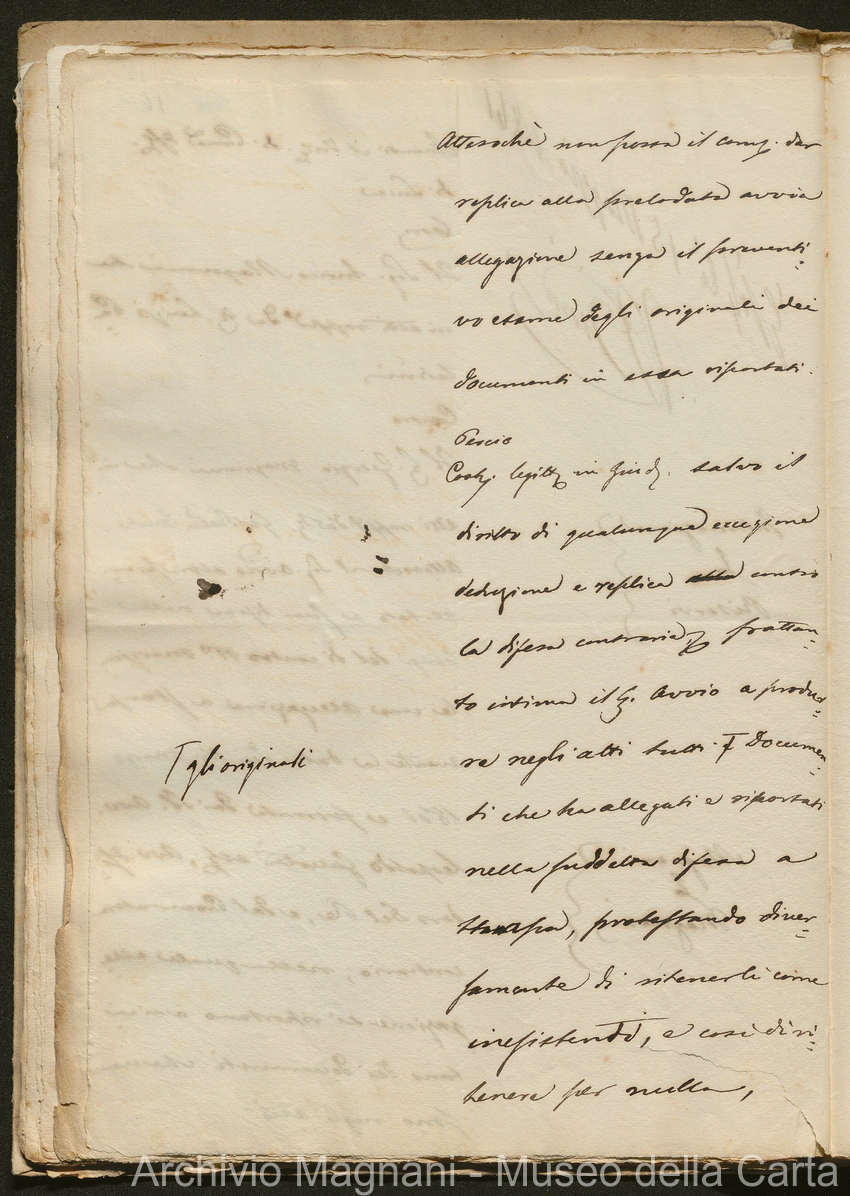 Attesochè non possa il comp. dar
replica alla prelodata avvia
allegazione senza il preventi=
vo esame degli originali dei
documenti in essa riportati.
Perciò
legitt in Giud. salvo il
diritto di qualunque eccezione
deduzione e replica alla contro
la difesa contraria frattan=
to intima il S. Avvio a produr=
re negli atti tutti Ŧ Documen=
ti che ha allegati e riportati
nella suddetta difesa a
stampa, protestando diver=
samente di ritenerli come
inesistenti, e così di ri=
tenere per nulla,
Ŧ gli originali
Archivio Magnani - Museo della Carta